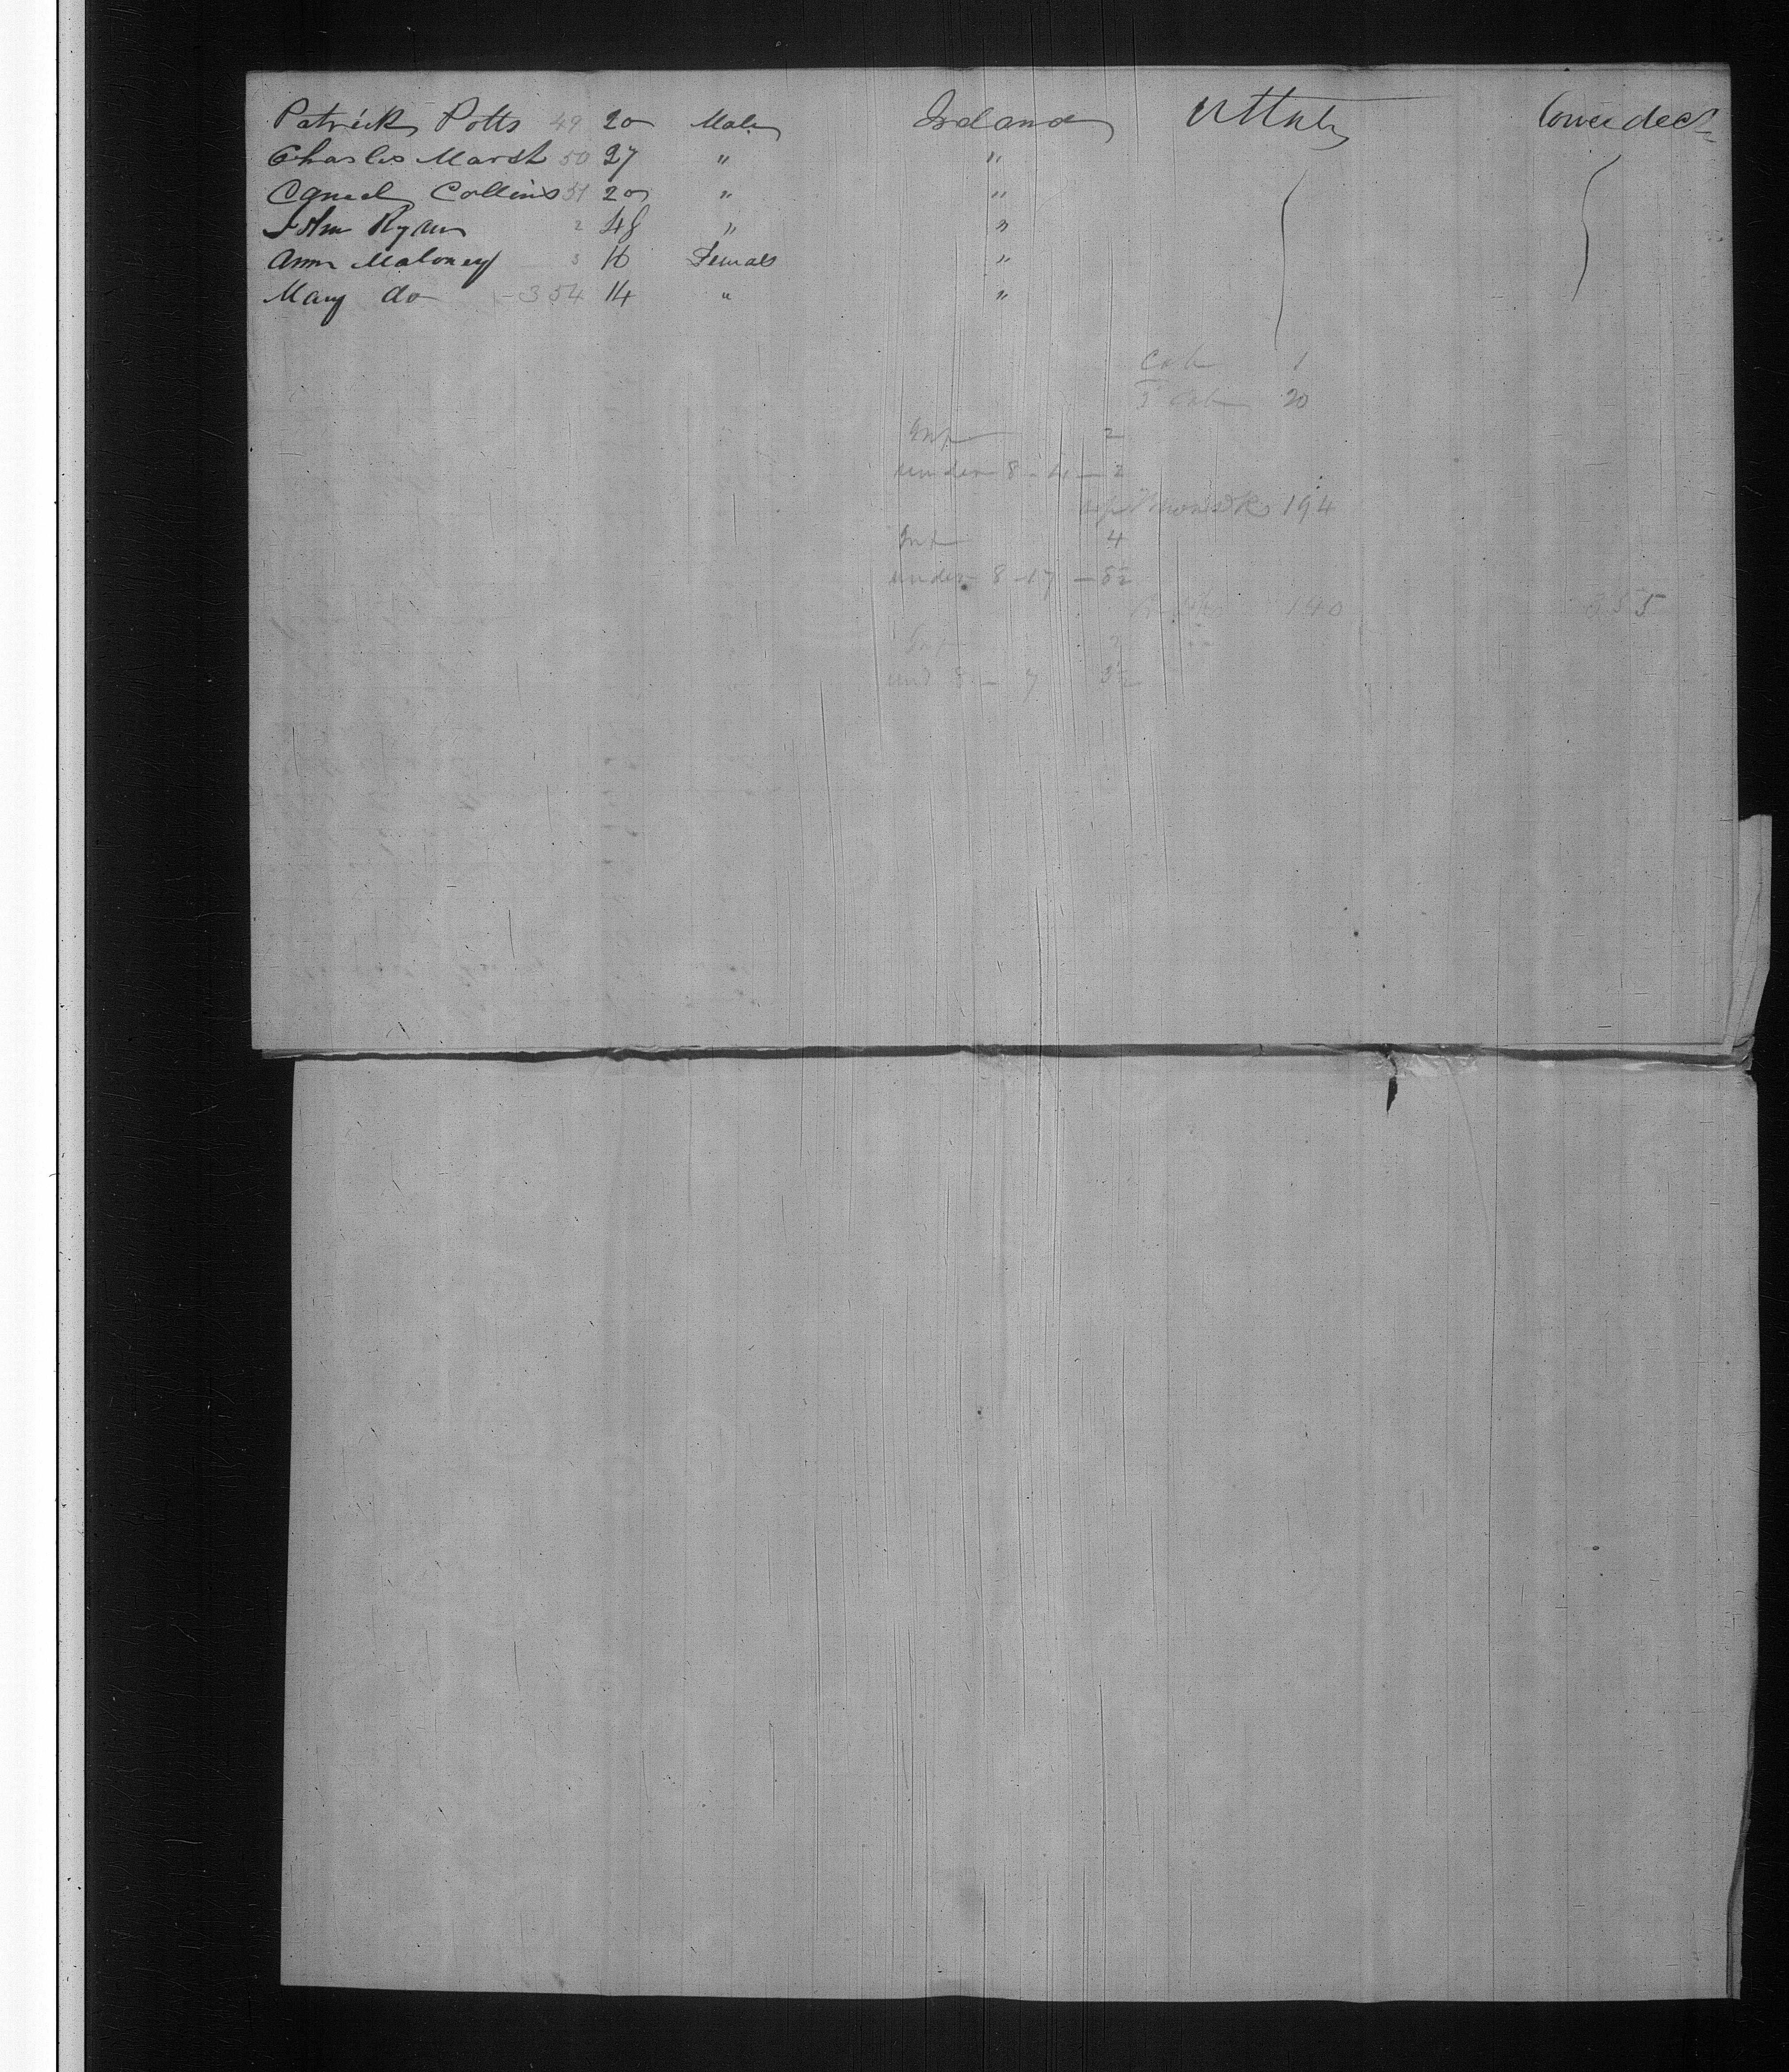 Patrick Potts 49 20 Male Ireland U States Lower deck
Charles Marsh 50 27 " "
Collins 51 20 " "
John Ryan 2 48 " "
Ann Maloney 3 16 Female "
Mary do 354 14 " "
Cab 1
Cab 20
Inf 2
under 8 - 4 - 2
194
Inf 4
under 8 - 17 -
140 355
Inf 2
und 8 - 7 3½